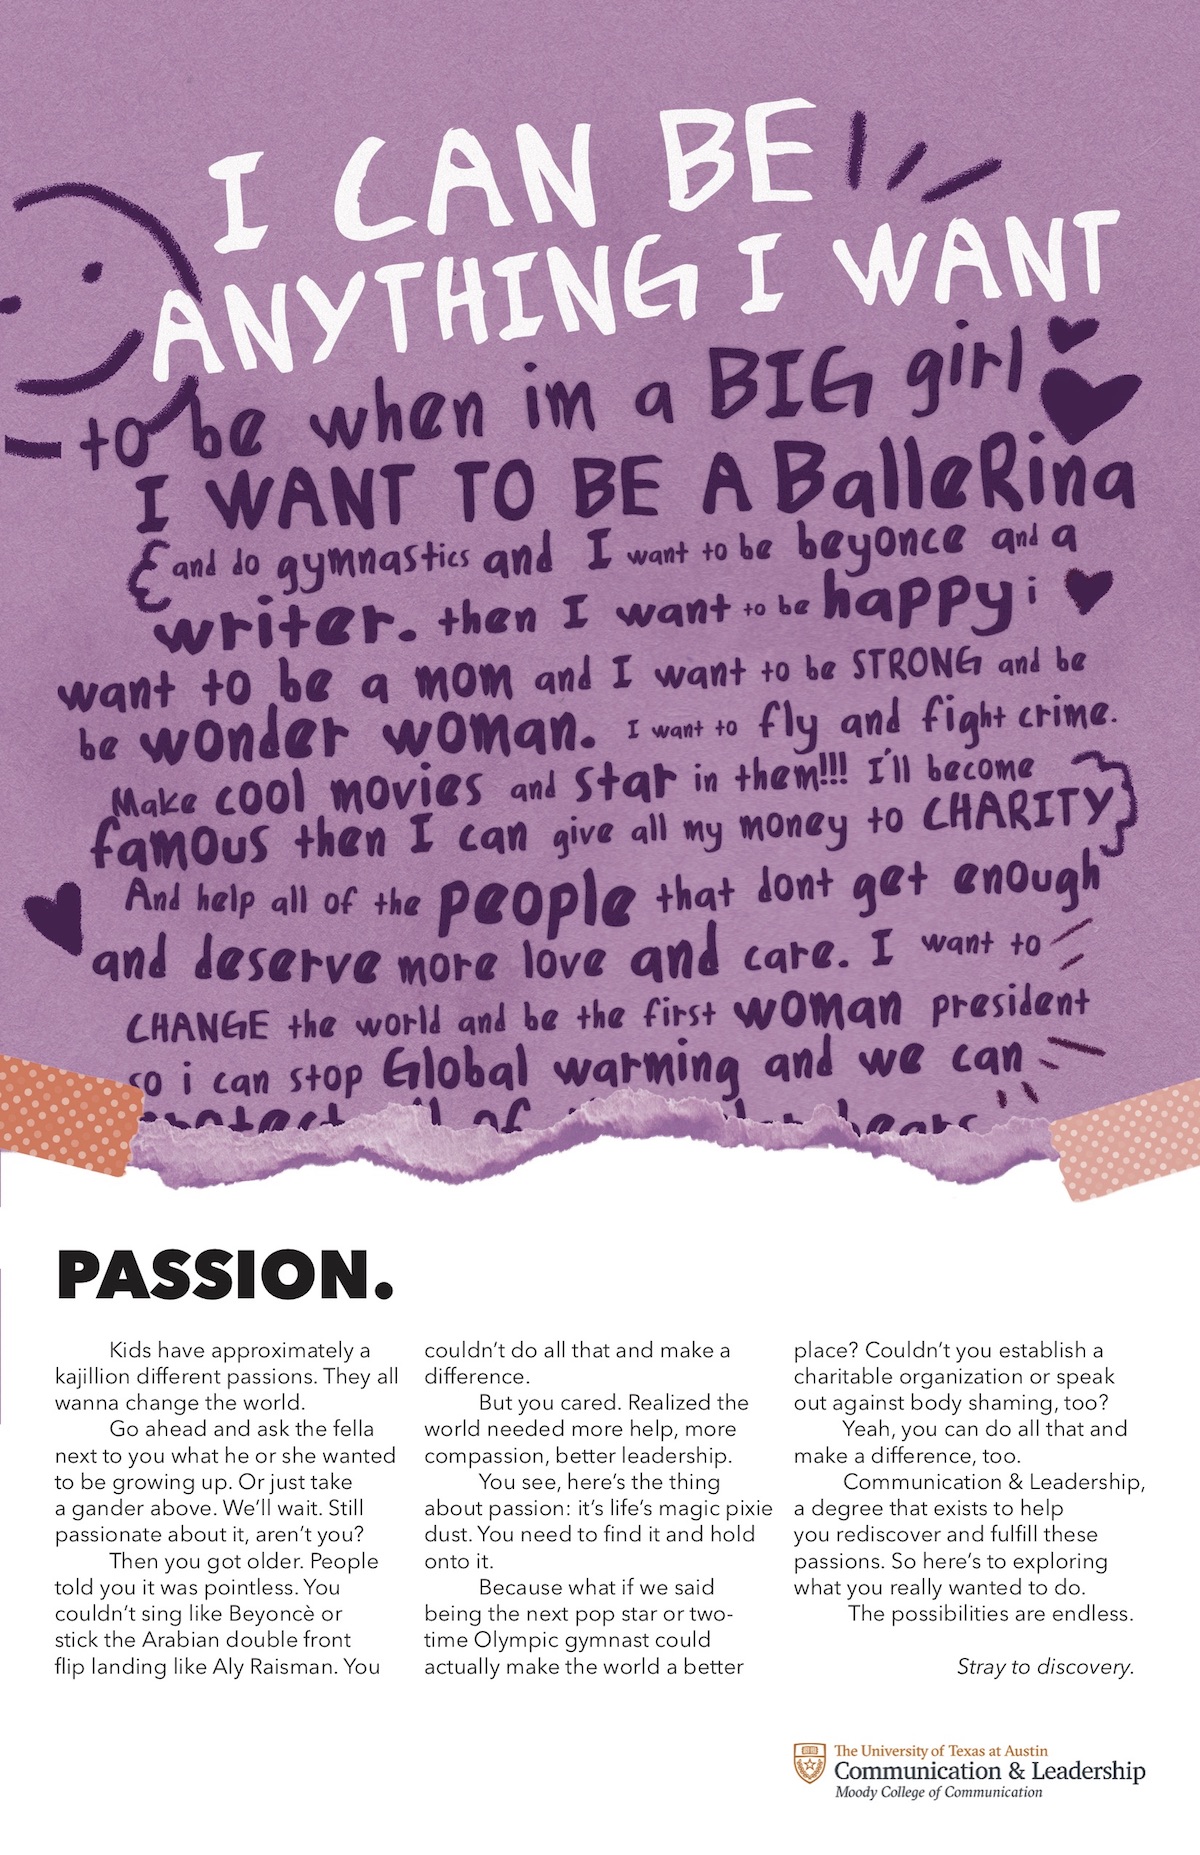 I CAN BE
ANYTHING I WANT
to be when im a BIG girl
I WANT TO BE A BalleRina
and do gymnastics and I want to be beyonce and a
writer. then I want to be happy i
want to be a mom and I want to be STRONG and be
be wonder woman. I want to fly and fight crime.
Make cool movies and star in them!!! I'll become
famous then I can give all my money to CHARITY
And help all of the people that dont get enough
and deserve more love and care. I want to
CHANGE the world and be the first woman president
so i can stop Global warming and we can
protect all of the bears
PASSION.
Kids have approximately a
kajillion different passions. They all
wanna change the world.
Go ahead and ask the fella
next to you what he or she wanted
to be growing up. Or just take
a gander above. We'll wait. Still
passionate about it, aren't you?
Then you got older. People
told you it was pointless. You
couldn't sing like Beyoncè or
stick the Arabian double front
flip landing like Aly Raisman. You
couldn't do all that and make a
difference.
But you cared. Realized the
world needed more help, more
compassion, better leadership.
You see, here's the thing
about passion: it's life's magic pixie
dust. You need to find it and hold
onto it.
Because what if we said
being the next pop star or two-
time Olympic gymnast could
actually make the world a better
place? Couldn't you establish a
charitable organization or speak
out against body shaming, too?
Yeah, you can do all that and
make a difference, too.
Communication & Leadership,
a degree that exists to help
you rediscover and fulfill these
passions. So here's to exploring
what you really wanted to do.
The possibilities are endless.
Stray to discovery.
The University of Texas at Austin
Communication & Leadership
Moody College of Communication